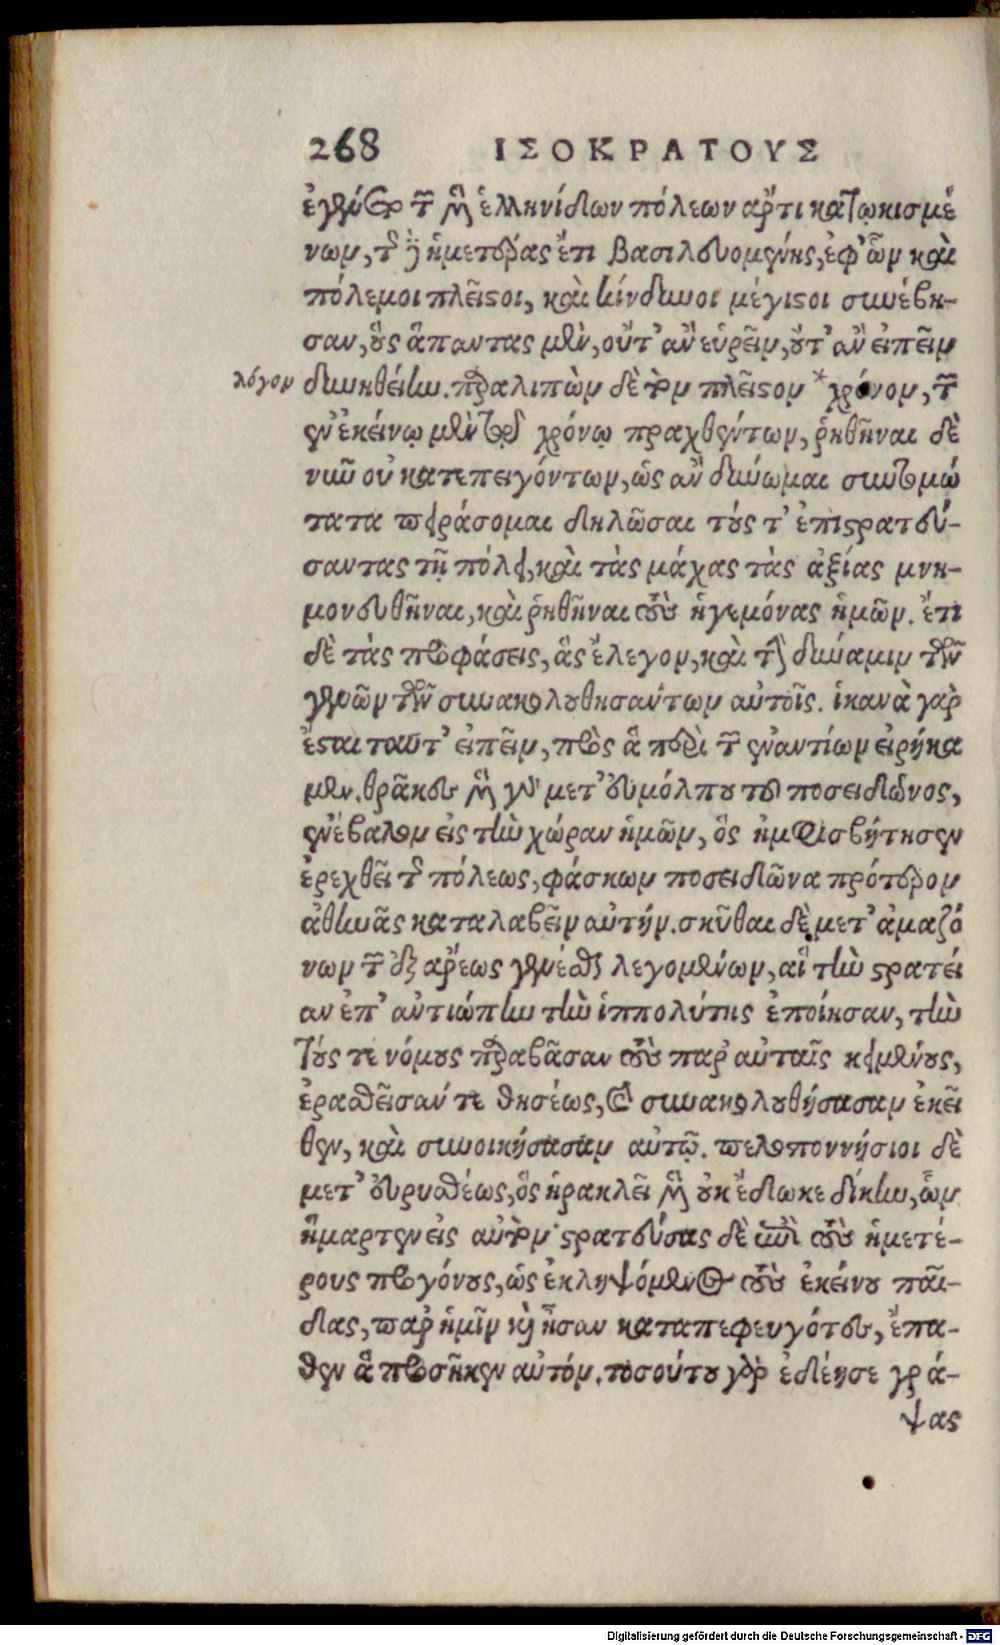 268 ΙΣΟΚΡΑΤΟΥΣ
ἐγένετο τῶν μὲν ἑλληνίδων πόλεων ἄρτι κατῳκισμέ
νων, τῆς δ' ἡμετέρας ἔτι βασιλευομένης, ἐφ' ὧν καὶ
πόλεμοι πλεῖστοι, καὶ κίνδυνοι μέγιστοι συνέβη-
σαν, οὓς ἅπαντας μὲν, οὔτ' ἂν εὑρεῖν, οὔτ' ἂν εἰπεῖν
λόγον
δυνηθείην. παραλιπὼν δὲ τὸν πλεῖστον *χρόνον, τῶν
ἐν ἐκείνῳ μὲν τῷ χρόνῳ πραχθέντων, ῥηθῆναι δὲ
νῦν οὐ κατεπειγόντων, ὡς ἂν δύνωμαι συντομώ
τατα πειράσομαι δηλῶσαι τούς τ' ἐπιστρατεύ-
σαντας τῇ πόλει, καὶ τὰς μάχας τὰς ἀξίας μνη-
μονευθῆναι, καὶ ῥηθῆναι τοὺς ἡγεμόνας ἡμῶν. ἔτι
δὲ τὰς προφάσεις, ἃς ἔλεγον, καὶ τὴν δύναμιν τῶν
γενῶν τῶν συνακολουθησάντων αὐτοῖς. ἱκανὰ γὰρ
ἔσται ταῦτ' εἰπεῖν, πρὸς ἃ περὶ τῶν ἐναντίων εἰρήκα
μεν. θρᾷκες μὲν γὰρ μετ' εὐμόλπου τοῦ ποσειδῶνος,
ἐνέβαλον εἰς τὴν χώραν ἡμῶν, ὃς ἠμφισβήτησεν
ἐρεχθεῖ τῆς πόλεως, φάσκων ποσειδῶνα πρότερον
ἀθηνᾶς καταλαβεῖν αὐτήν. σκύθαι δὲ μετ' ἀμαζό
νων τῶν ἐξ ἄρεως γενέσθαι λεγομένων, αἳ τὴν στρατεί
αν ἐπ' ἀντιώπην τὴν ἱππολύτης ἐποίησαν, τὴν
τούς τε νόμους παραβᾶσαν τοὺς παρ' αὐταῖς κειμένους,
ἐρασθεῖσάν τε θησέως, καὶ συνακολουθήσασαν ἐκεῖ
θεν, καὶ συνοικήσασαν αὐτῷ. πελοποννήσιοι δὲ
μετ' εὐρυσθέως, ὃς ἡρακλεῖ μὲν οὐκ ἔδωκε δίκην, ὧν
ἥμαρτεν εἰς αὐτόν· στρατεύσας δὲ ἐπὶ τοὺς ἡμετέ-
ρους προγόνους, ὡς ἐκληψόμενος τοὺς ἐκείνου παῖ-
δας, παρ' ἡμῖν καὶ ἦσαν καταπεφευγότες, ἔπα-
θεν ἃ προσῆκεν αὐτόν. τοσούτου γὰρ ἐδέησε γρά-
ψας
Digitalisierung gefördert durch die Deutsche Forschungsgemeinschaft - DFG